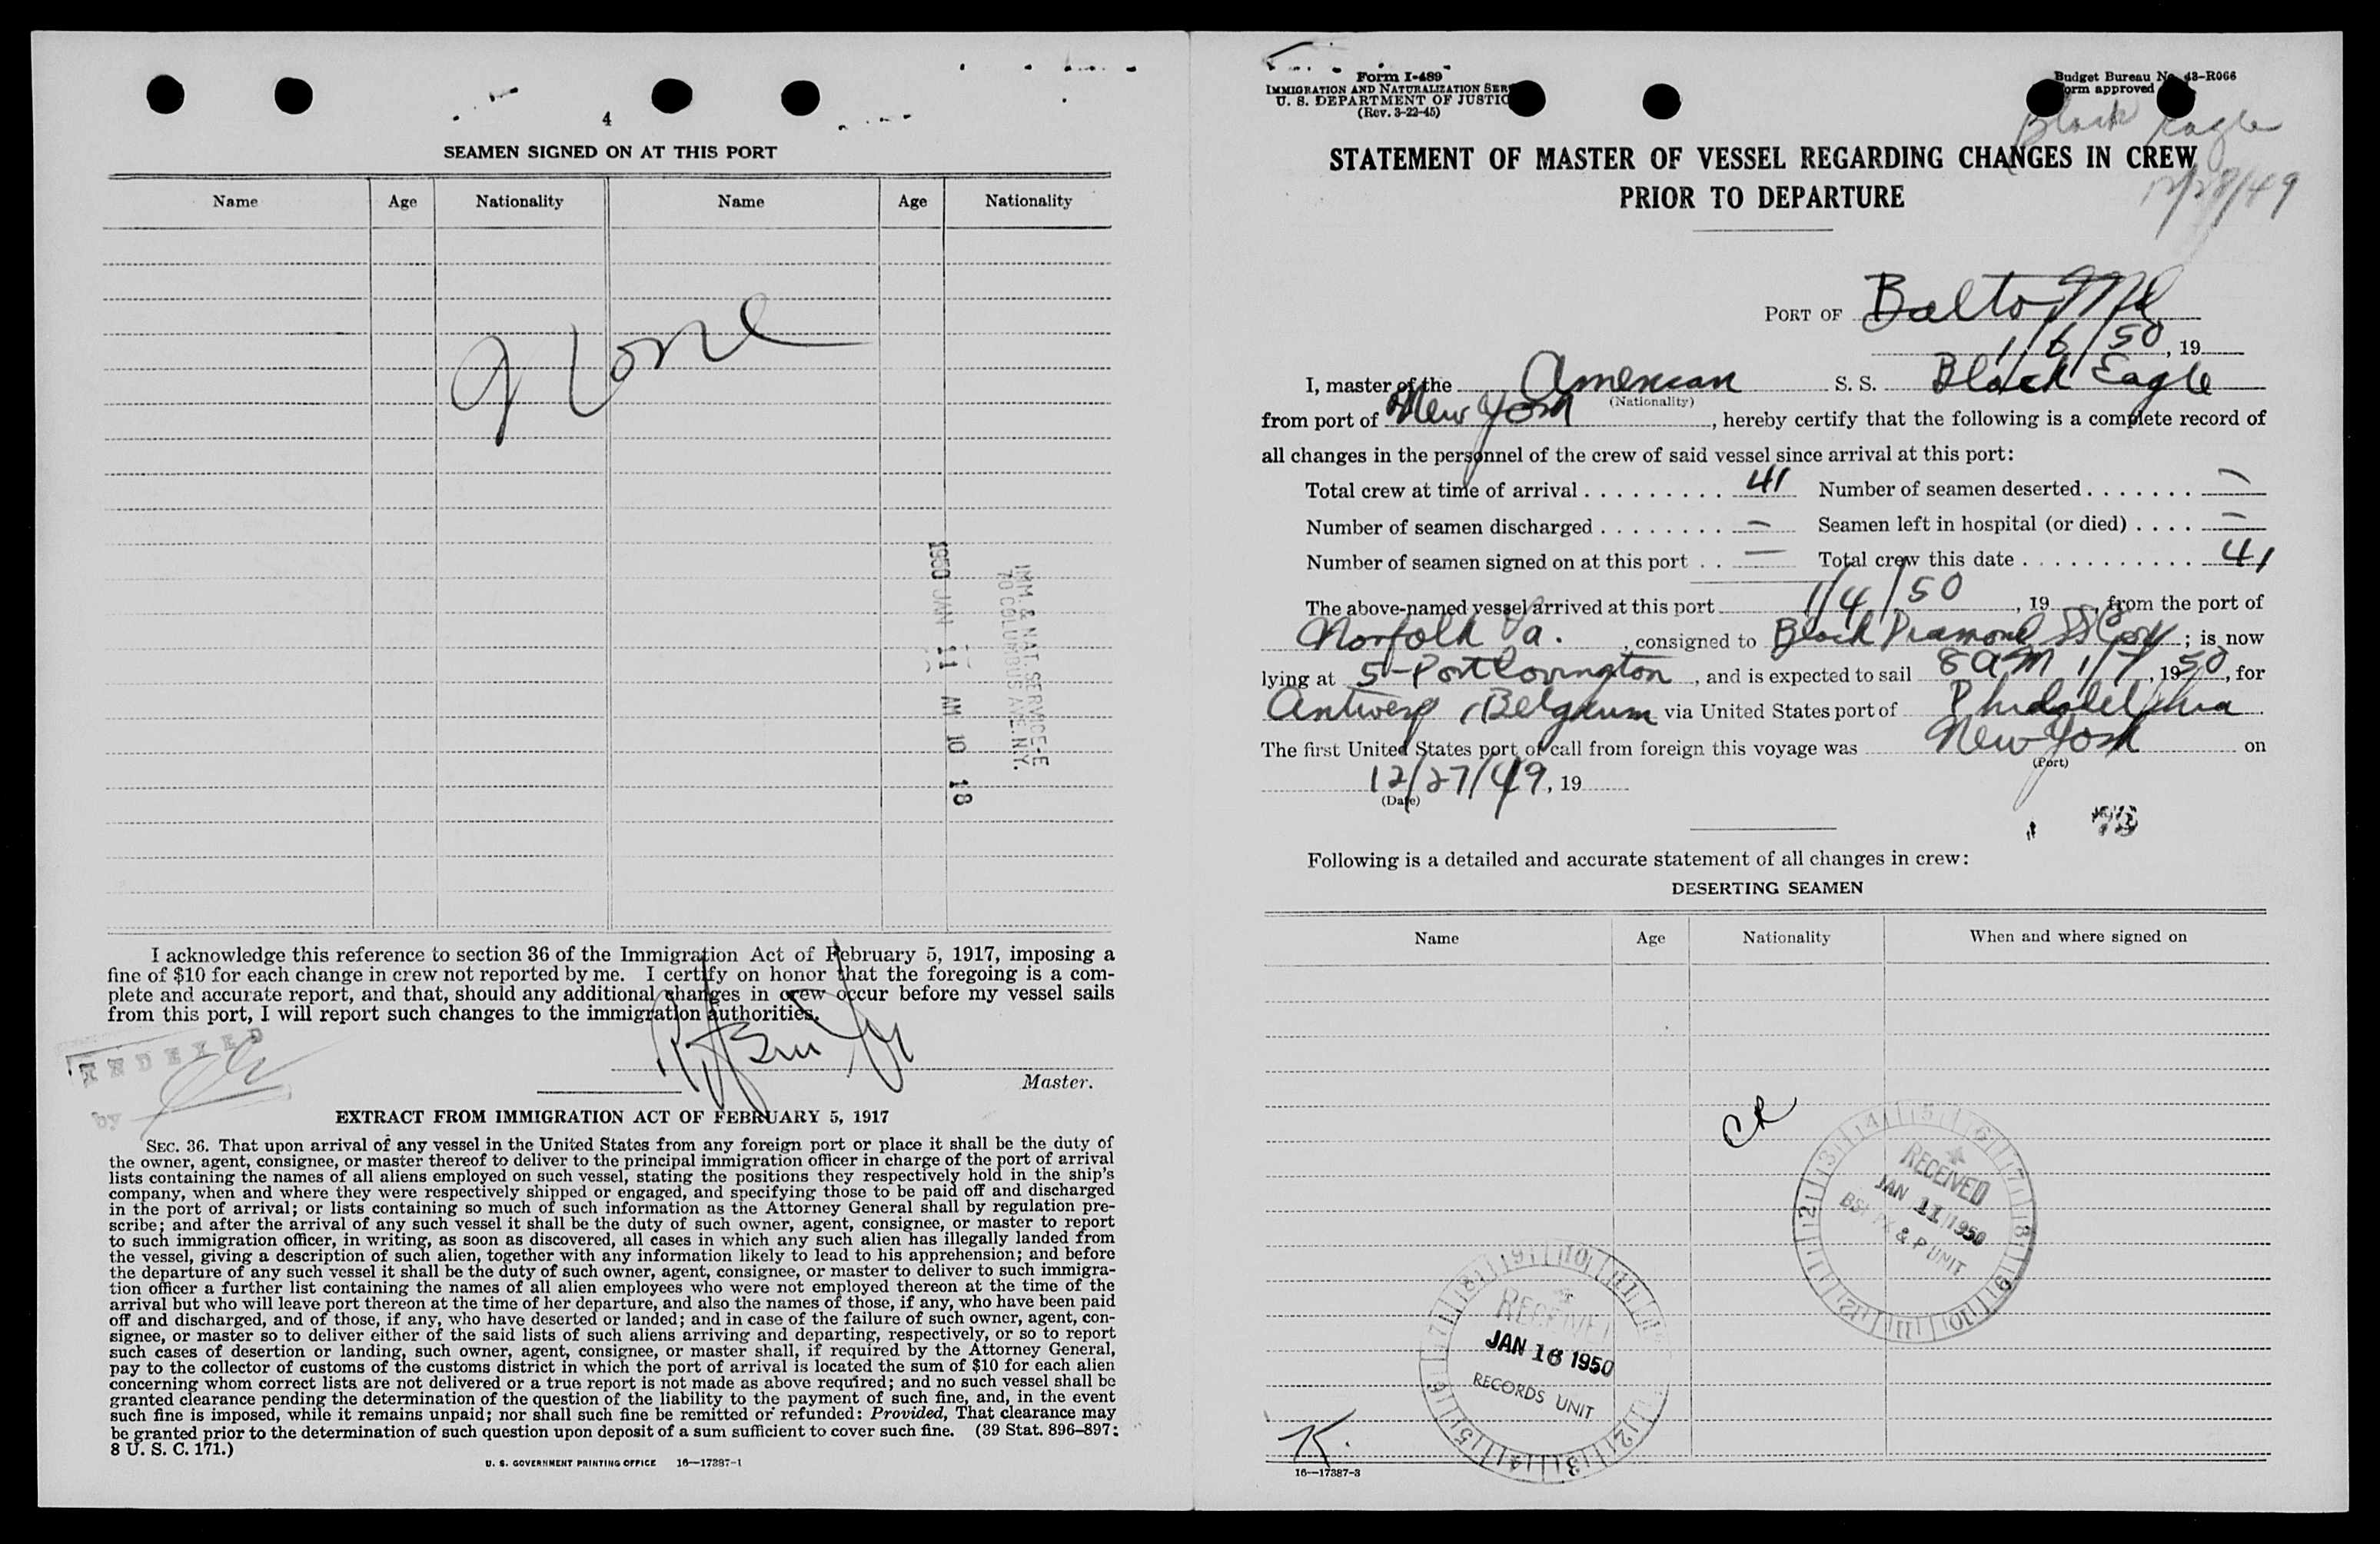 4
SEAMEN SIGNED ON AT THIS PORT
Name Age Nationality Name Age Nationality
None
IMM. & NAT. SERVICE-E
70 COLUMBUS AVE. N.Y.
1950 JAN 11 AM 10 18
I acknowledge this reference to section 36 of the Immigration Act of February 5, 1917, imposing a
fine of $10 for each change in crew not reported by me. I certify on honor that the foregoing is a com-
plete and accurate report, and that, should any additional changes in crew occur before my vessel sails
from this port, I will report such changes to the immigration authorities.
INDEXED
by
Master.
EXTRACT FROM IMMIGRATION ACT OF FEBRUARY 5, 1917
SEC. 36. That upon arrival of any vessel in the United States from any foreign port or place it shall be the duty of
the owner, agent, consignee, or master thereof to deliver to the principal immigration officer in charge of the port of arrival
lists containing the names of all aliens employed on such vessel, stating the positions they respectively hold in the ship's
company, when and where they were respectively shipped or engaged, and specifying those to be paid off and discharged
in the port of arrival; or lists containing so much of such information as the Attorney General shall by regulation pre-
scribe; and after the arrival of any such vessel it shall be the duty of such owner, agent, consignee, or master to report
to such immigration officer, in writing, as soon as discovered, all cases in which any such alien has illegally landed from
the vessel, giving a description of such alien, together with any information likely to lead to his apprehension; and before
the departure of any such vessel it shall be the duty of such owner, agent, consignee, or master to deliver to such immigra-
tion officer a further list containing the names of all alien employees who were not employed thereon at the time of the
arrival but who will leave port thereon at the time of her departure, and also the names of those, if any, who have been paid
off and discharged, and of those, if any, who have deserted or landed; and in case of the failure of such owner, agent, con-
signee, or master so to deliver either of the said lists of such aliens arriving and departing, respectively, or so to report
such cases of desertion or landing, such owner, agent, consignee, or master shall, if required by the Attorney General,
pay to the collector of customs of the customs district in which the port of arrival is located the sum of $10 for each alien
concerning whom correct lists are not delivered or a true report is not made as above required; and no such vessel shall be
granted clearance pending the determination of the question of the liability to the payment of such fine, and, in the event
such fine is imposed, while it remains unpaid; nor shall such fine be remitted or refunded: Provided, That clearance may
be granted prior to the determination of such question upon deposit of a sum sufficient to cover such fine. (39 Stat. 896–897;
8 U. S. C. 171.)
U. S. GOVERNMENT PRINTING OFFICE 16—17387-1
Form I-489
IMMIGRATION AND NATURALIZATION SER
U. S. DEPARTMENT OF JUSTIC
(Rev. 3-22-45)
Budget Bureau No. 43-R066
orm approved
Black Eagle
12/28/49
STATEMENT OF MASTER OF VESSEL REGARDING CHANGES IN CREW
PRIOR TO DEPARTURE
PORT OF Balto Md
1/6/50, 19
I, master of the American S. S. Black Eagle
(Nationality)
from port of New York, hereby certify that the following is a complete record of
all changes in the personnel of the crew of said vessel since arrival at this port:
Total crew at time of arrival 41 Number of seamen deserted —
Number of seamen discharged — Seamen left in hospital (or died) —
Number of seamen signed on at this port — Total crew this date 41
The above-named vessel arrived at this port 1/4/50, 19, from the port of
Norfolk Va., consigned to Black Diamond SS Corp; is now
lying at 5-Port Covington, and is expected to sail 8 AM 1/7, 1950, for
Antwerp, Belgium via United States port of Philadelphia
The first United States port of call from foreign this voyage was New York on
(Port)
12/27/49, 19
(Date)
Following is a detailed and accurate statement of all changes in crew:
DESERTING SEAMEN
Name Age Nationality When and where signed on
RECEIVED
JAN 11 1950
& P UNIT
RECEIVED
JAN 16 1950
RECORDS UNIT
K.
16—17387-3